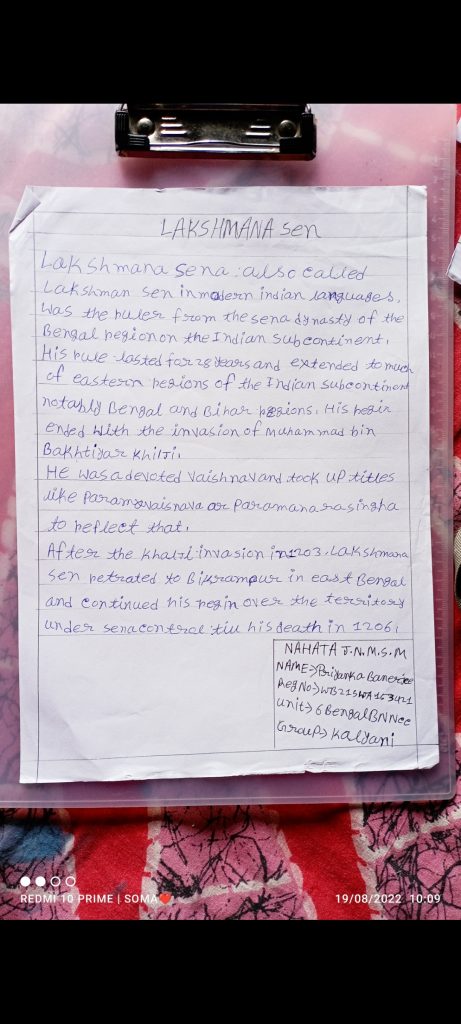 LAKSHMANA Sen
Lakshmana Sena : also called
Lakshman Sen in modern indian languages,
was the ruler from the sena dynasty of the
Bengal region on the Indian Subcontinent.
His rule lasted for 28 years and extended to much
of eastern regions of the Indian subcontinent
notably Bengal and Bihar regions. His regin
ended with the invasion of Muhammad bin
Bakhtiyar Khilji.
He was a devoted Vaishnav and took up titles
like Paramavaisnava or Paramanarasingha
to reflect that.
After the Khalji invasion in 1203. Lakshmana
Sen retrated to Bikrampur in east Bengal
and continued his regin over the territory
under sena control till his death in 1206.
NAHATA J.N.M.S.M
NAME⇒Priyanka Banerjee
Reg No⇒WB21SWA153421
Unit⇒6 Bengal BN Ncc
Group⇒Kalyani
REDMI 10 PRIME | SOMA❤️
19/08/2022 10:09